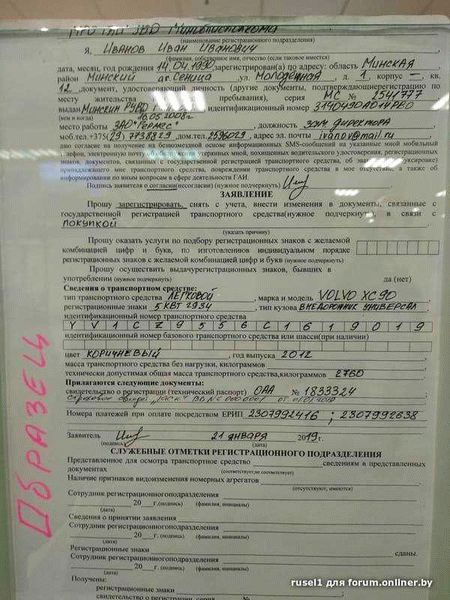 МРО ГАИ УВД Миноблисполкома
(наименование регистрационного подразделения)
Я, Иванов Иван Иванович
(фамилия, собственное имя, отчество (если таковое имеется)
дата, месяц, год рождения 14.04.1990 зарегистрирован(а) по адресу: область Минская
район Минский аг. Сеница ул. Молодежная, д. 1 корпус – кв.
12 документ, удостоверяющий личность (другие документы, подтверждающие регистрацию по
месту жительства пребывания), серия МС №
(кем и когда) 16.05.2008г.
место работы ЗАО "Гермес" должность зам. директора
дом.тел. 2596029 адрес эл. почты ivanov@mail.ru
даю согласие на получение на безвозмездной основе информационных SMS-сообщений на указанные мной мобильный
Подпись заявителя о согласии(несогласии) (нужное подчеркнуть)
ЗАЯВЛЕНИЕ
Прошу зарегистрировать, снять с учета, внести изменения в документы, связанные с
государственной регистрацией транспортного средства(нужное подчеркнуть) в связи с
покупкой
(указать причину)
Прошу оказать услуги по подбору регистрационных знаков с желаемой
комбинацией цифр и букв, по изготовлению по индивидуальному заказу
регистрационных знаков с желаемой комбинацией цифр и букв (нужное подчеркнуть)
Прошу осуществить выдачу регистрационных знаков, бывших в
употреблении (нужное подчеркнуть) да (нет)
Сведения о транспортном средстве:
тип транспортного средства легковой, марка и модель VOLVO XC90
регистрационные знаки 5 КВТ 2934 тип кузова внедорожник универсал
идентификационный номер транспортного средства
Y V 1 C Z 9 5 5 6 C 1 6 1 9 0 1 9
идентификационный номер базового транспортного средства или шасси(при наличии)
цвет коричневый, год выпуска 2012
масса транспортного средства без нагрузки, килограммов
технически допустимая общая масса транспортного средства,килограммов 2760
Прилагаются следующие документы:
свидетельство о регистрации (технический паспорт) ОАА № 1833324
Номера платежей при оплате посредством ЕРИП 2307992416 ; 2307992638
Заявитель 21 января 2019г.
(подпись)
СЛУЖЕБНЫЕ ОТМЕТКИ РЕГИСТРАЦИОННОГО ПОДРАЗДЕЛЕНИЯ
Представленное для осмотра транспортное средство сведениям в представленных
документах (соответствует,не соответствует)
Наличие признаков видоизменения номерных агрегатов
(отсутствуют, имеются)
Сотрудник регистрационного подразделения
20 г. (подпись) (фамилия, инициалы)
Сведения о принятии заявления
Сотрудник регистрационного подразделения
20 г. (подпись) (фамилия, инициалы)
Регистрационные знаки сданы.
Сотрудник регистрационного подразделения
20 г. (подпись) (фамилия, инициалы)
Получены:
регистрационные знаки
ОБРАЗЕЦ
rusel1 для forum.onliner.by